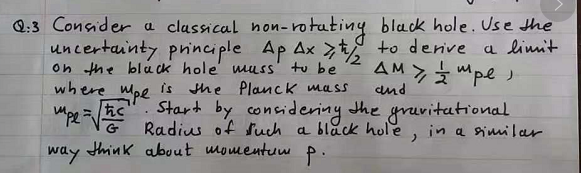 Q:3 Consider a classical non-rotating black hole. Use the
uncertainty principle Δp Δx ≥ ħ/2 to derive a limit
on the black hole mass to be ΔM ≥ 1/2 mpl,
where mpl is the Planck mass and
mpl = √(ħc/G). Start by considering the gravitational
Radius of such a black hole, in a similar
way think about momentum p.